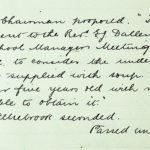 Chairman proposed. "T
ent to the Revd. F.J. Dallen
hool Managers Meeting
to consider the unde
supplied with soup.
r five years old with n
ble to obtain it."
llebrook seconded.
Passed un